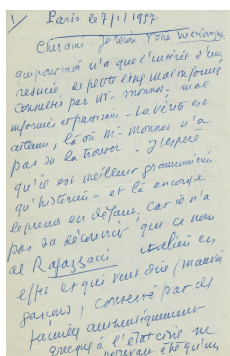 1/ Paris le 7/1/1997
Cher ami - Je reçois votre
qui pour moi n'a que l'intérêt d'un
mal informé
par Mr. Monnot. mal
informé et partisan. La vérité est
ailleurs, là où Mr Monnot n'a
pas su la trouver. J'espère
qu'il est meilleur grammairien
qu'historien - et là encore
je le prends en défaut, car il n'a
pas su découvrir que ce nom
de Ragazzacci italien en
effet et qui veut dire (mauvais
garçons), conservé par des
familles authentiquement
grecques à l'état civil ne
pouvait être qu'un